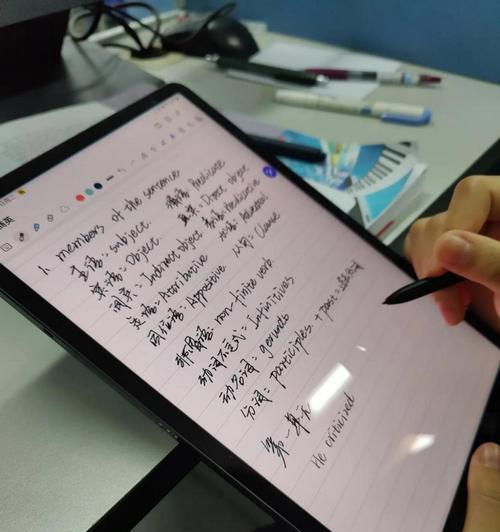 1. members of the sentence
主语: subject. 谓语: Predicate
宾语: object. 直宾: Direct object
间宾: Indirect object 表语: Predicative
定语: Attributive 状语: Adverbial
同位语: Appositive 从句: Clause
非谓语: non-finite verb.
动词不定式: Infinitives
动名词: gerunds
分词: participles. + past =
第一单元
He criticized